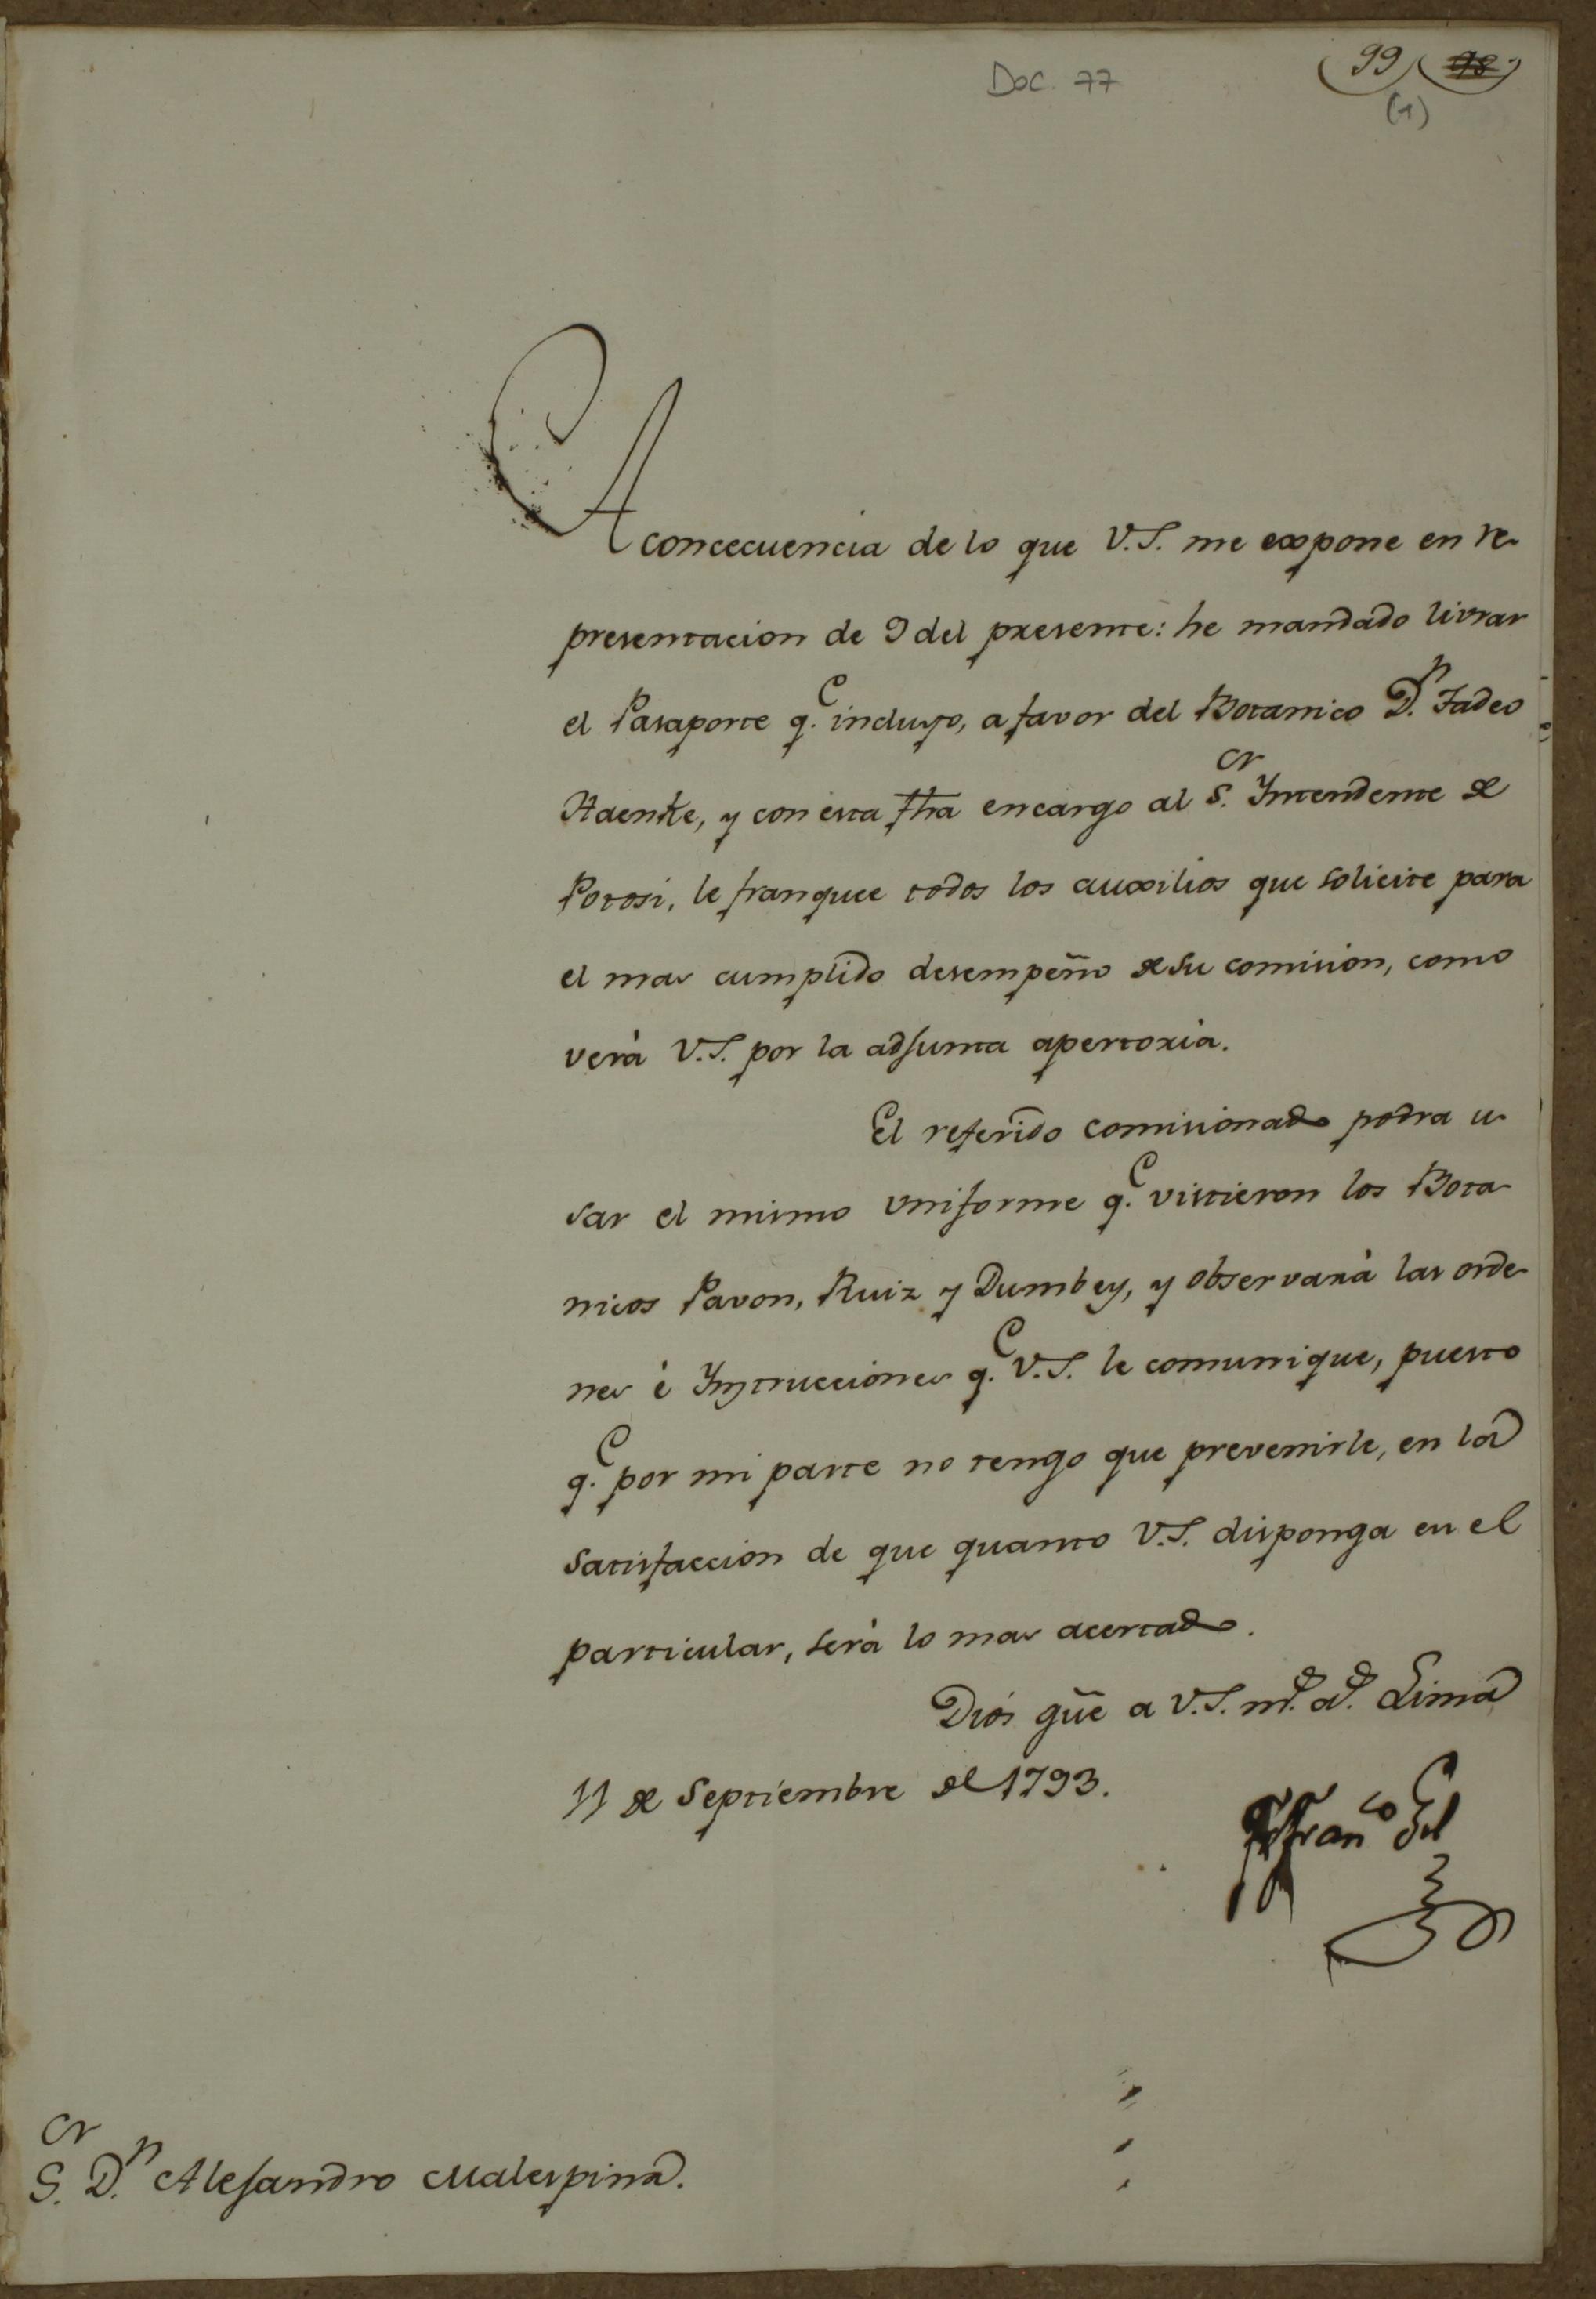 Doc. 77
99 98
(1)
A concecuencia de lo que V.S. me expone en re-
presentacion de 9 del presente: he mandado livrar
el Pasaporte q.e incluyo, a favor del Botanico D.n Tadeo
Haenke, y con esta fha encargo al S.or Yntendente de
Potosi, le franquee todos los auxilios que solicite para
el mas cumplido desempeño de su comision, como
verà V.S. por la adjunta apertoria.
El referido comisionado podra u-
sar el mismo uniforme q.e vistieron los Bota-
nicos Pavon, Ruiz y Dumbey, y observarà las orde-
nes è Ynstrucciones q.e V.S. le comunique, puesto
q.e por mi parte no tengo que prevenirle, en la
satisfaccion de que quanto V.S. disponga en el
particular, serà lo mas acertado.
Dios gūe a V.S. m.s a.s Lima
11 de Septiembre de 1793.
Fr Fran.co Gil
S.or D.n Alejandro Malespina.